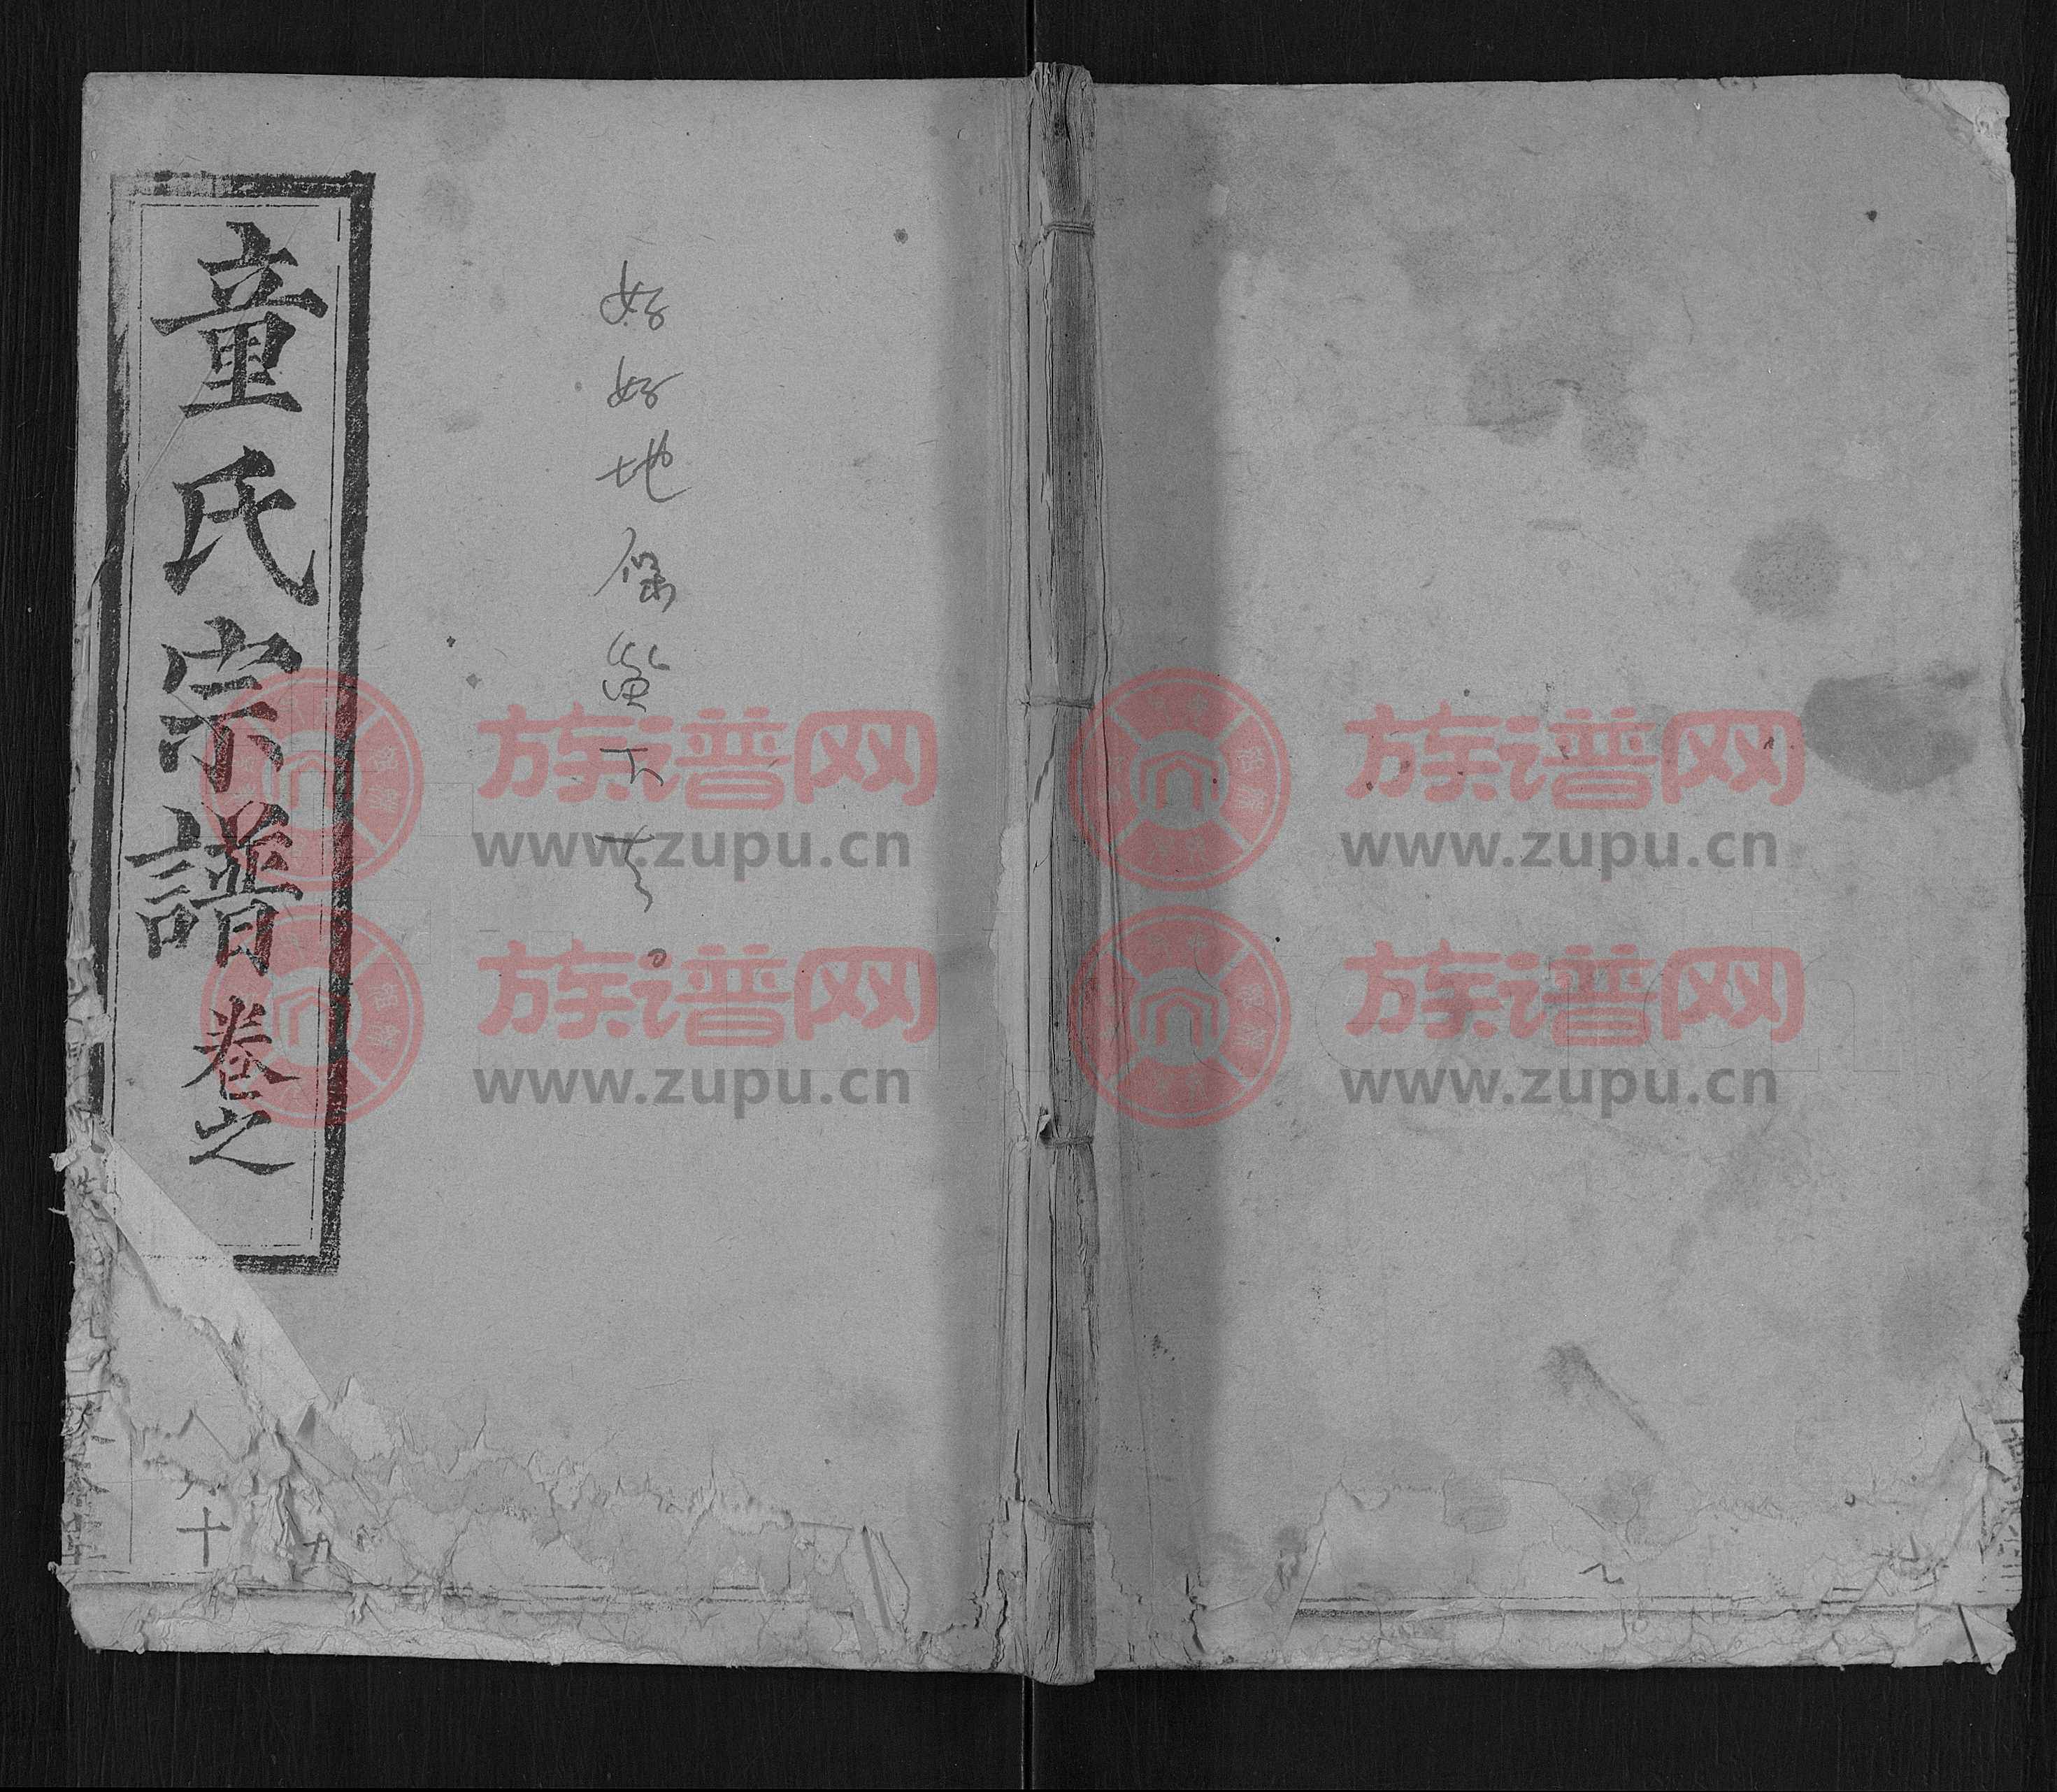 好好地保留下去。
童氏宗譜卷之
八
十
九
族谱网 族谱网
www.zupu.cn www.zupu.cn
族谱网 族谱网
www.zupu.cn www.zupu.cn